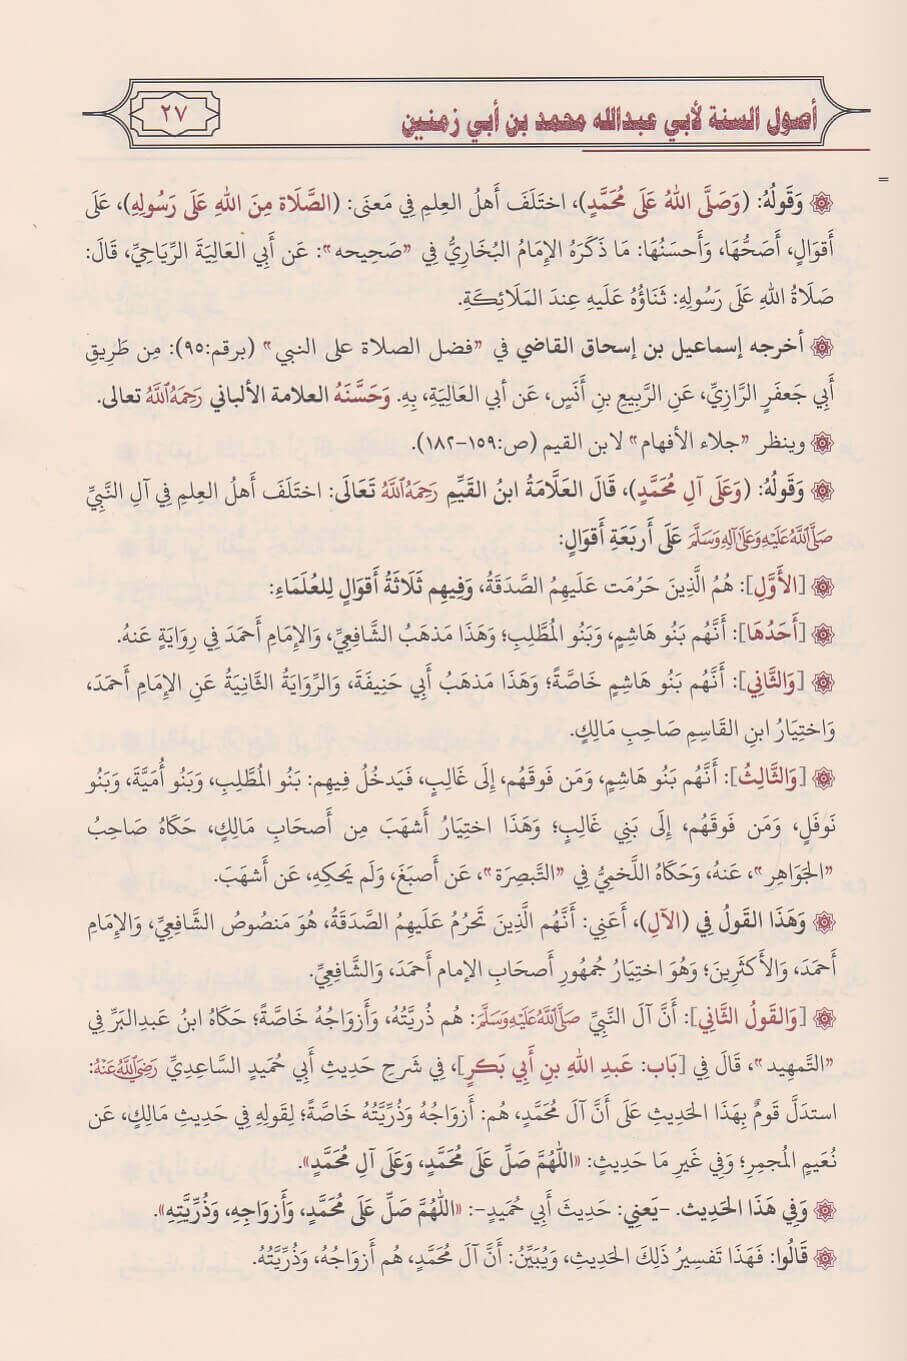 أصول السنة لأبي عبدالله محمد بن أبي زمنين
٢٧
وَقَولُهُ: (وَصَلَّى اللهُ عَلَى مُحَمَّدٍ)، اختَلَفَ أَهلُ العِلمِ فِي مَعنَى: (الصَّلَاة مِنَ اللهِ عَلَى رَسُولِهِ)، عَلَى
أَقوَالٍ، أَصَحُّهَا، وَأَحسَنُهَا: مَا ذَكَرَهُ الإِمَامُ البُخَارِيُّ فِي "صَحِيحه": عَن أَبِي العَالِيَةَ الرِّيَاحِيِّ، قَالَ:
صَلَاةُ اللهِ عَلَى رَسُولِهِ: ثَنَاؤُهُ عَلَيهِ عِندَ المَلَائِكَةِ.
أخرجه إسماعيل بن إسحاق القاضي في "فضل الصلاة على النبي" (برقم:٩٥): مِن طَرِيقِ
أَبِي جَعفَرٍ الرَّازِيِّ، عَنِ الرَّبِيعِ بنِ أَنَسٍ، عَن أبي العَالِيَةِ، بِهِ. وَحَسَّنَهُ العلامة الألباني رَحِمَهُ اللَّهُ تعالى.
وينظر "جلاء الأفهام" لابن القيم (ص:١٥٩-١٨٢).
وَقَولُهُ: (وَعَلَى آلِ مُحَمَّدٍ)، قَالَ العَلَّامَةُ ابنُ القَيِّمِ رَحِمَهُ اللَّهُ تَعَالَى: اختَلَفَ أَهلُ العِلمِ فِي آلِ النَّبِيِّ
صَلَّى اللَّهُ عَلَيْهِ وَعَلَى آلِهِ وَسَلَّمَ عَلَى أَربَعَةِ أَقوَالٍ:
[الأَوَّلِ]: هُمُ الَّذِينَ حَرُمَت عَلَيهِمُ الصَّدَقَةُ، وَفِيهِم ثَلَاثَةُ أَقوَالٍ لِلعُلَمَاءِ:
[أَحَدُهَا]: أَنَّهُم بَنُو هَاشِمٍ، وَبَنُو المُطَّلِبِ؛ وَهَذَا مَذهَبُ الشَّافِعِيِّ، وَالإِمَامِ أَحمَدَ فِي رِوَايَةٍ عَنهُ.
[وَالثَّانِي]: أَنَّهُم بَنُو هَاشِمٍ خَاصَّةً؛ وَهَذَا مَذهَبُ أَبِي حَنِيفَةَ، وَالرِّوَايَةُ الثَّانِيَةُ عَنِ الإِمَامِ أَحمَدَ،
وَاختِيَارُ ابنِ القَاسِمِ صَاحِبِ مَالِكٍ.
[وَالثَّالِثُ]: أَنَّهُم بَنُو هَاشِمٍ، وَمَن فَوقَهُم، إِلَى غَالِبٍ، فَيَدخُلُ فِيهِم: بَنُو المُطَّلِبِ، وَبَنُو أُمَيَّةَ، وَبَنُو
نَوفَلٍ، وَمَن فَوقَهُم، إِلَى بَنِي غَالِبٍ؛ وَهَذَا اختِيَارُ أَشهَبَ مِن أَصحَابِ مَالِكٍ، حَكَاهُ صَاحِبُ
"الجَوَاهِرِ"، عَنهُ، وَحَكَاهُ اللَّخمِيُّ فِي "التَّبصِرَة"، عَن أَصبَغَ، وَلَم يَحكِهِ، عَن أَشهَبَ.
وَهَذَا القَولُ فِي (الآلِ)، أَعَنِي: أَنَّهُم الَّذِينَ تَحرُمُ عَلَيهِمُ الصَّدَقَةُ، هُوَ مَنصُوصُ الشَّافِعِيِّ، وَالإِمَامِ
أَحمَدَ، وَالأَكثَرِينَ؛ وَهُوَ اختِيَارُ جُمهُورِ أَصحَابِ الإمام أَحمَدَ، وَالشَّافِعِيِّ.
[وَالقَولُ الثَّانِي]: أَنَّ آلَ النَّبِيِّ صَلَّى اللَّهُ عَلَيْهِ وَسَلَّمَ: هُم ذُرِّيَّتُهُ، وَأَزوَاجُهُ خَاصَّةً؛ حَكَاهُ ابنُ عَبدِالبَرِّ فِي
"التَّمهِيد"، قَالَ فِي [بَاب: عَبدِ اللهِ بنِ أَبِي بَكرٍ]، فِي شَرحِ حَدِيثِ أَبِي حُمَيدٍ السَّاعِدِيِّ رَضِيَ اللَّهُ عَنْهُ:
استدَلَّ قَومٌ بِهَذَا الحَدِيثِ عَلَى أَنَّ آلَ مُحَمَّدٍ، هُم: أَزوَاجُهُ وَذُرِّيَّتُهُ خَاصَّةً؛ لِقَولِهِ فِي حَدِيثِ مَالِكٍ، عَن
نُعَيمٍ المُجمِرِ؛ وَفِي غَيرِ مَا حَدِيثٍ: «اللَّهُمَّ صَلِّ عَلَى مُحَمَّدٍ، وَعَلَى آلِ مُحَمَّدٍ».
وَفِي هَذَا الحَدِيث. -يَعنِي: حَدِيثَ أَبِي حُمَيدٍ-: «اللَّهُمَّ صَلِّ عَلَى مُحَمَّدٍ، وَأَزوَاجِهِ، وَذُرِّيَّتِهِ».
قَالُوا: فَهَذَا تَفسِيرُ ذَلِكَ الحَدِيثِ، وَيُبَيِّنُ: أَنَّ آلَ مُحَمَّدٍ، هُم أَزوَاجُهُ، وَذُرِّيَّتُهُ.